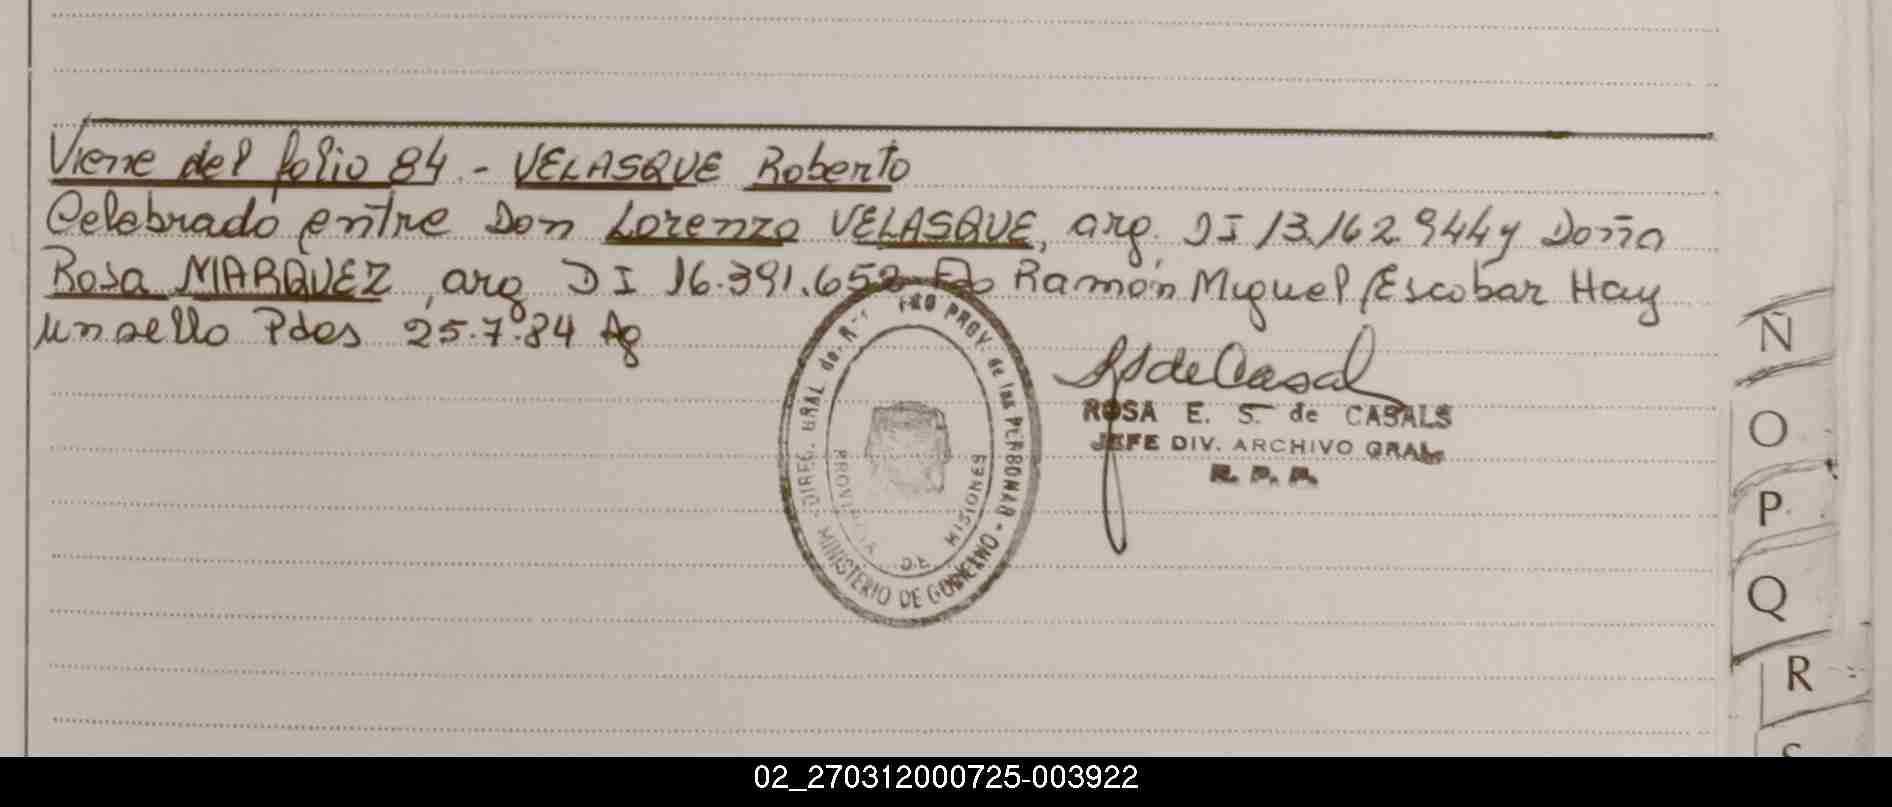 Viene del folio 84.- VELASQUE Roberto
Celebrado entre Don Lorenzo VELASQUE, arg. DI 13.162.944 y Doña
Rosa MARQUEZ, arg DI 16.391.652 Fdo Ramón Miguel Escobar Hay
un sello Pdas 25.7.84
DIREC. GRAL de PROV. de las PERSONAS - MINISTERIO DE GOBIERNO -
PROVINCIA DE MISIONES
ROSA E. S. de CASALS
JEFE DIV. ARCHIVO GRAL
R. P. P.
Ñ
O
P
Q
R
S
02_270312000725-003922